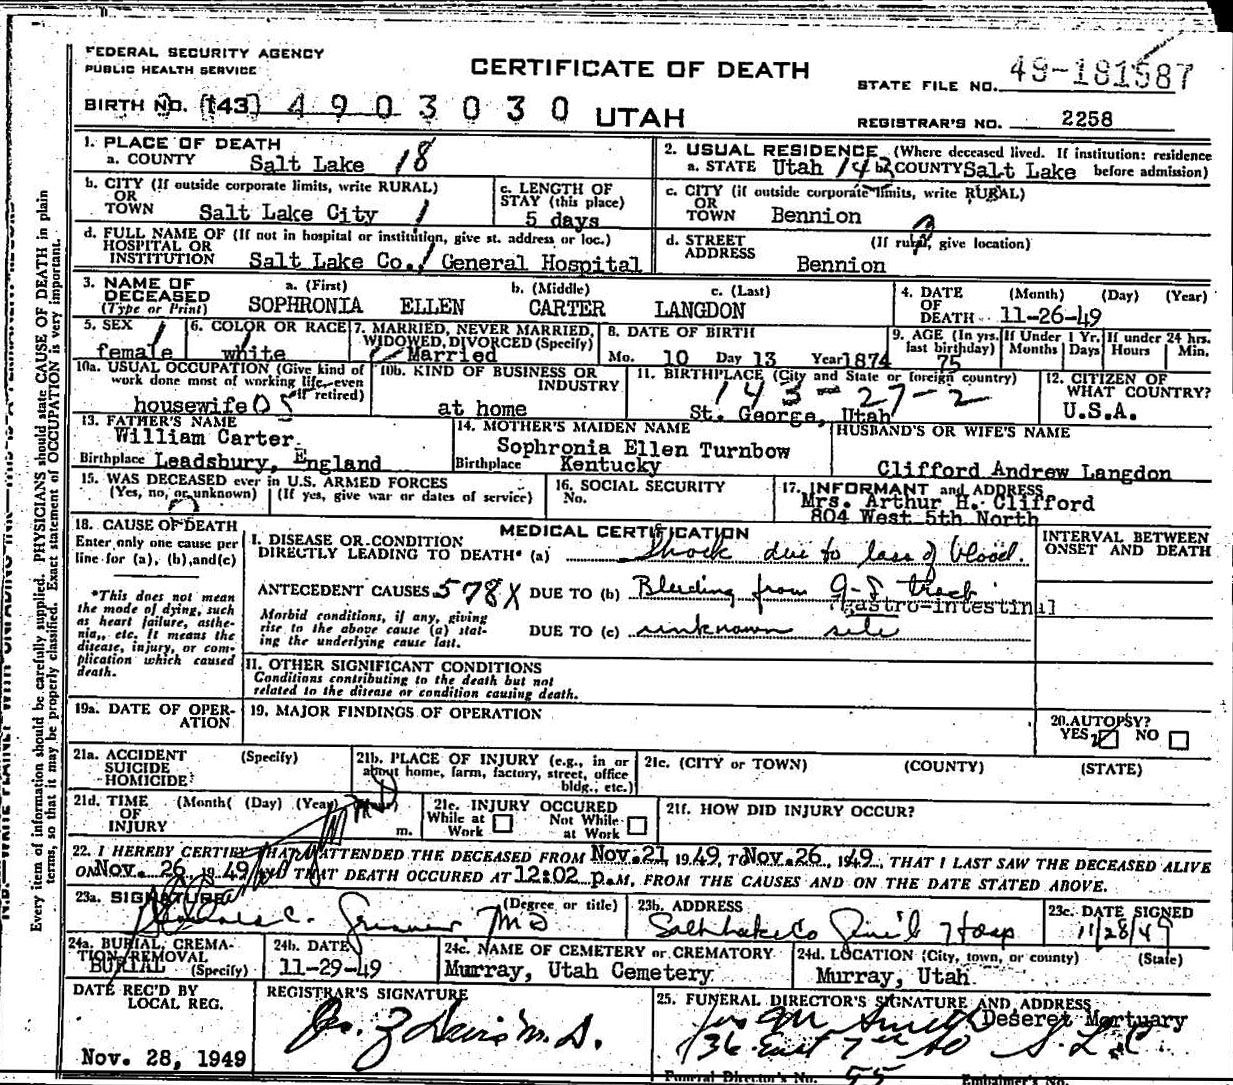 FEDERAL SECURITY AGENCY
PUBLIC HEALTH SERVICE
CERTIFICATE OF DEATH
STATE FILE NO. 49-181587
BIRTH NO. (143) 4903030 UTAH
REGISTRAR'S NO. 2258
1. PLACE OF DEATH
a. COUNTY Salt Lake 18
2. USUAL RESIDENCE (Where deceased lived. If institution: residence before admission)
a. STATE Utah 143 COUNTY Salt Lake
b. CITY (If outside corporate limits, write RURAL)
OR
TOWN Salt Lake City 1
c. LENGTH OF
STAY (this place)
5 days
c. CITY (if outside corporate limits, write RURAL)
OR
TOWN Bennion
d. FULL NAME OF (If not in hospital or institution, give st. address or loc.)
HOSPITAL OR
INSTITUTION Salt Lake Co. General Hospital
d. STREET (If rural, give location)
ADDRESS Bennion
3. NAME OF
DECEASED
(Type or Print)
a. (First) b. (Middle) c. (Last)
SOPHRONIA ELLEN CARTER LANGDON
4. DATE (Month) (Day) (Year)
OF
DEATH 11-26-49
5. SEX
female
6. COLOR OR RACE
white
7. MARRIED, NEVER MARRIED,
WIDOWED, DIVORCED (Specify)
Married
8. DATE OF BIRTH
Mo. 10 Day 13 Year 1874
9. AGE (In yrs.
last birthday)
75
If Under 1 Yr.
Months Days
If under 24 hrs.
Hours Min.
10a. USUAL OCCUPATION (Give kind of
work done most of working life, even
if retired)
housewife 05
10b. KIND OF BUSINESS OR
INDUSTRY
at home
11. BIRTHPLACE (City and State or foreign country)
143-27-2
St. George, Utah
12. CITIZEN OF
WHAT COUNTRY?
U.S.A.
13. FATHER'S NAME
William Carter
Birthplace Leadsbury, England
14. MOTHER'S MAIDEN NAME
Sophronia Ellen Turnbow
Birthplace Kentucky
HUSBAND'S OR WIFE'S NAME
Clifford Andrew Langdon
15. WAS DECEASED ever in U.S. ARMED FORCES
(Yes, no, or unknown) (If yes, give war or dates of service)
16. SOCIAL SECURITY
No.
17. INFORMANT and ADDRESS
Mrs. Arthur H. Clifford
804 West 5th North
18. CAUSE OF DEATH
Enter only one cause per
line for (a), (b), and (c)
*This does not mean
the mode of dying, such
as heart failure, asthe-
nia, etc. It means the
disease, injury, or com-
plication which caused
death.
MEDICAL CERTIFICATION
I. DISEASE OR CONDITION
DIRECTLY LEADING TO DEATH* (a) Shock due to loss of blood.
ANTECEDENT CAUSES 578X DUE TO (b) Bleeding from G-I tract
gastro-intestinal
Morbid conditions, if any, giving
rise to the above cause (a) stat-
ing the underlying cause last.
DUE TO (c) unknown site
INTERVAL BETWEEN
ONSET AND DEATH
II. OTHER SIGNIFICANT CONDITIONS
Conditions contributing to the death but not
related to the disease or condition causing death.
19a. DATE OF OPER-
ATION
19. MAJOR FINDINGS OF OPERATION
20. AUTOPSY?
YES NO
21a. ACCIDENT (Specify)
SUICIDE
HOMICIDE
21b. PLACE OF INJURY (e.g., in or
about home, farm, factory, street, office
bldg., etc.)
21c. (CITY or TOWN) (COUNTY) (STATE)
21d. TIME (Month) (Day) (Year) (Hour)
OF
INJURY m.
21e. INJURY OCCURED
While at Work Not While at Work
21f. HOW DID INJURY OCCUR?
22. I HEREBY CERTIFY THAT I ATTENDED THE DECEASED FROM Nov. 21, 1949, TO Nov. 26, 1949, THAT I LAST SAW THE DECEASED ALIVE
ON Nov. 26, 1949 AND THAT DEATH OCCURED AT 12:02 p.M, FROM THE CAUSES AND ON THE DATE STATED ABOVE.
23a. SIGNATURE (Degree or title)
C. MD
23b. ADDRESS
Salt Lake Co Gen'l Hosp
23c. DATE SIGNED
11/28/49
24a. BURIAL, CREMA-
TION, REMOVAL
BURIAL (Specify)
24b. DATE
11-29-49
24c. NAME OF CEMETERY or CREMATORY
Murray, Utah Cemetery
24d. LOCATION (City, town, or county) (State)
Murray, Utah
DATE REC'D BY
LOCAL REG.
Nov. 28, 1949
REGISTRAR'S SIGNATURE
M.D.
25. FUNERAL DIRECTOR'S SIGNATURE AND ADDRESS
Smith Deseret Mortuary
36 East 7th So S.L.C.
Funeral Director's No. 55 Embalmer's No.
Every item of information should be carefully supplied. PHYSICIANS should state CAUSE OF DEATH in plain
terms, so that it may be properly classified. Exact statement of OCCUPATION is very important.